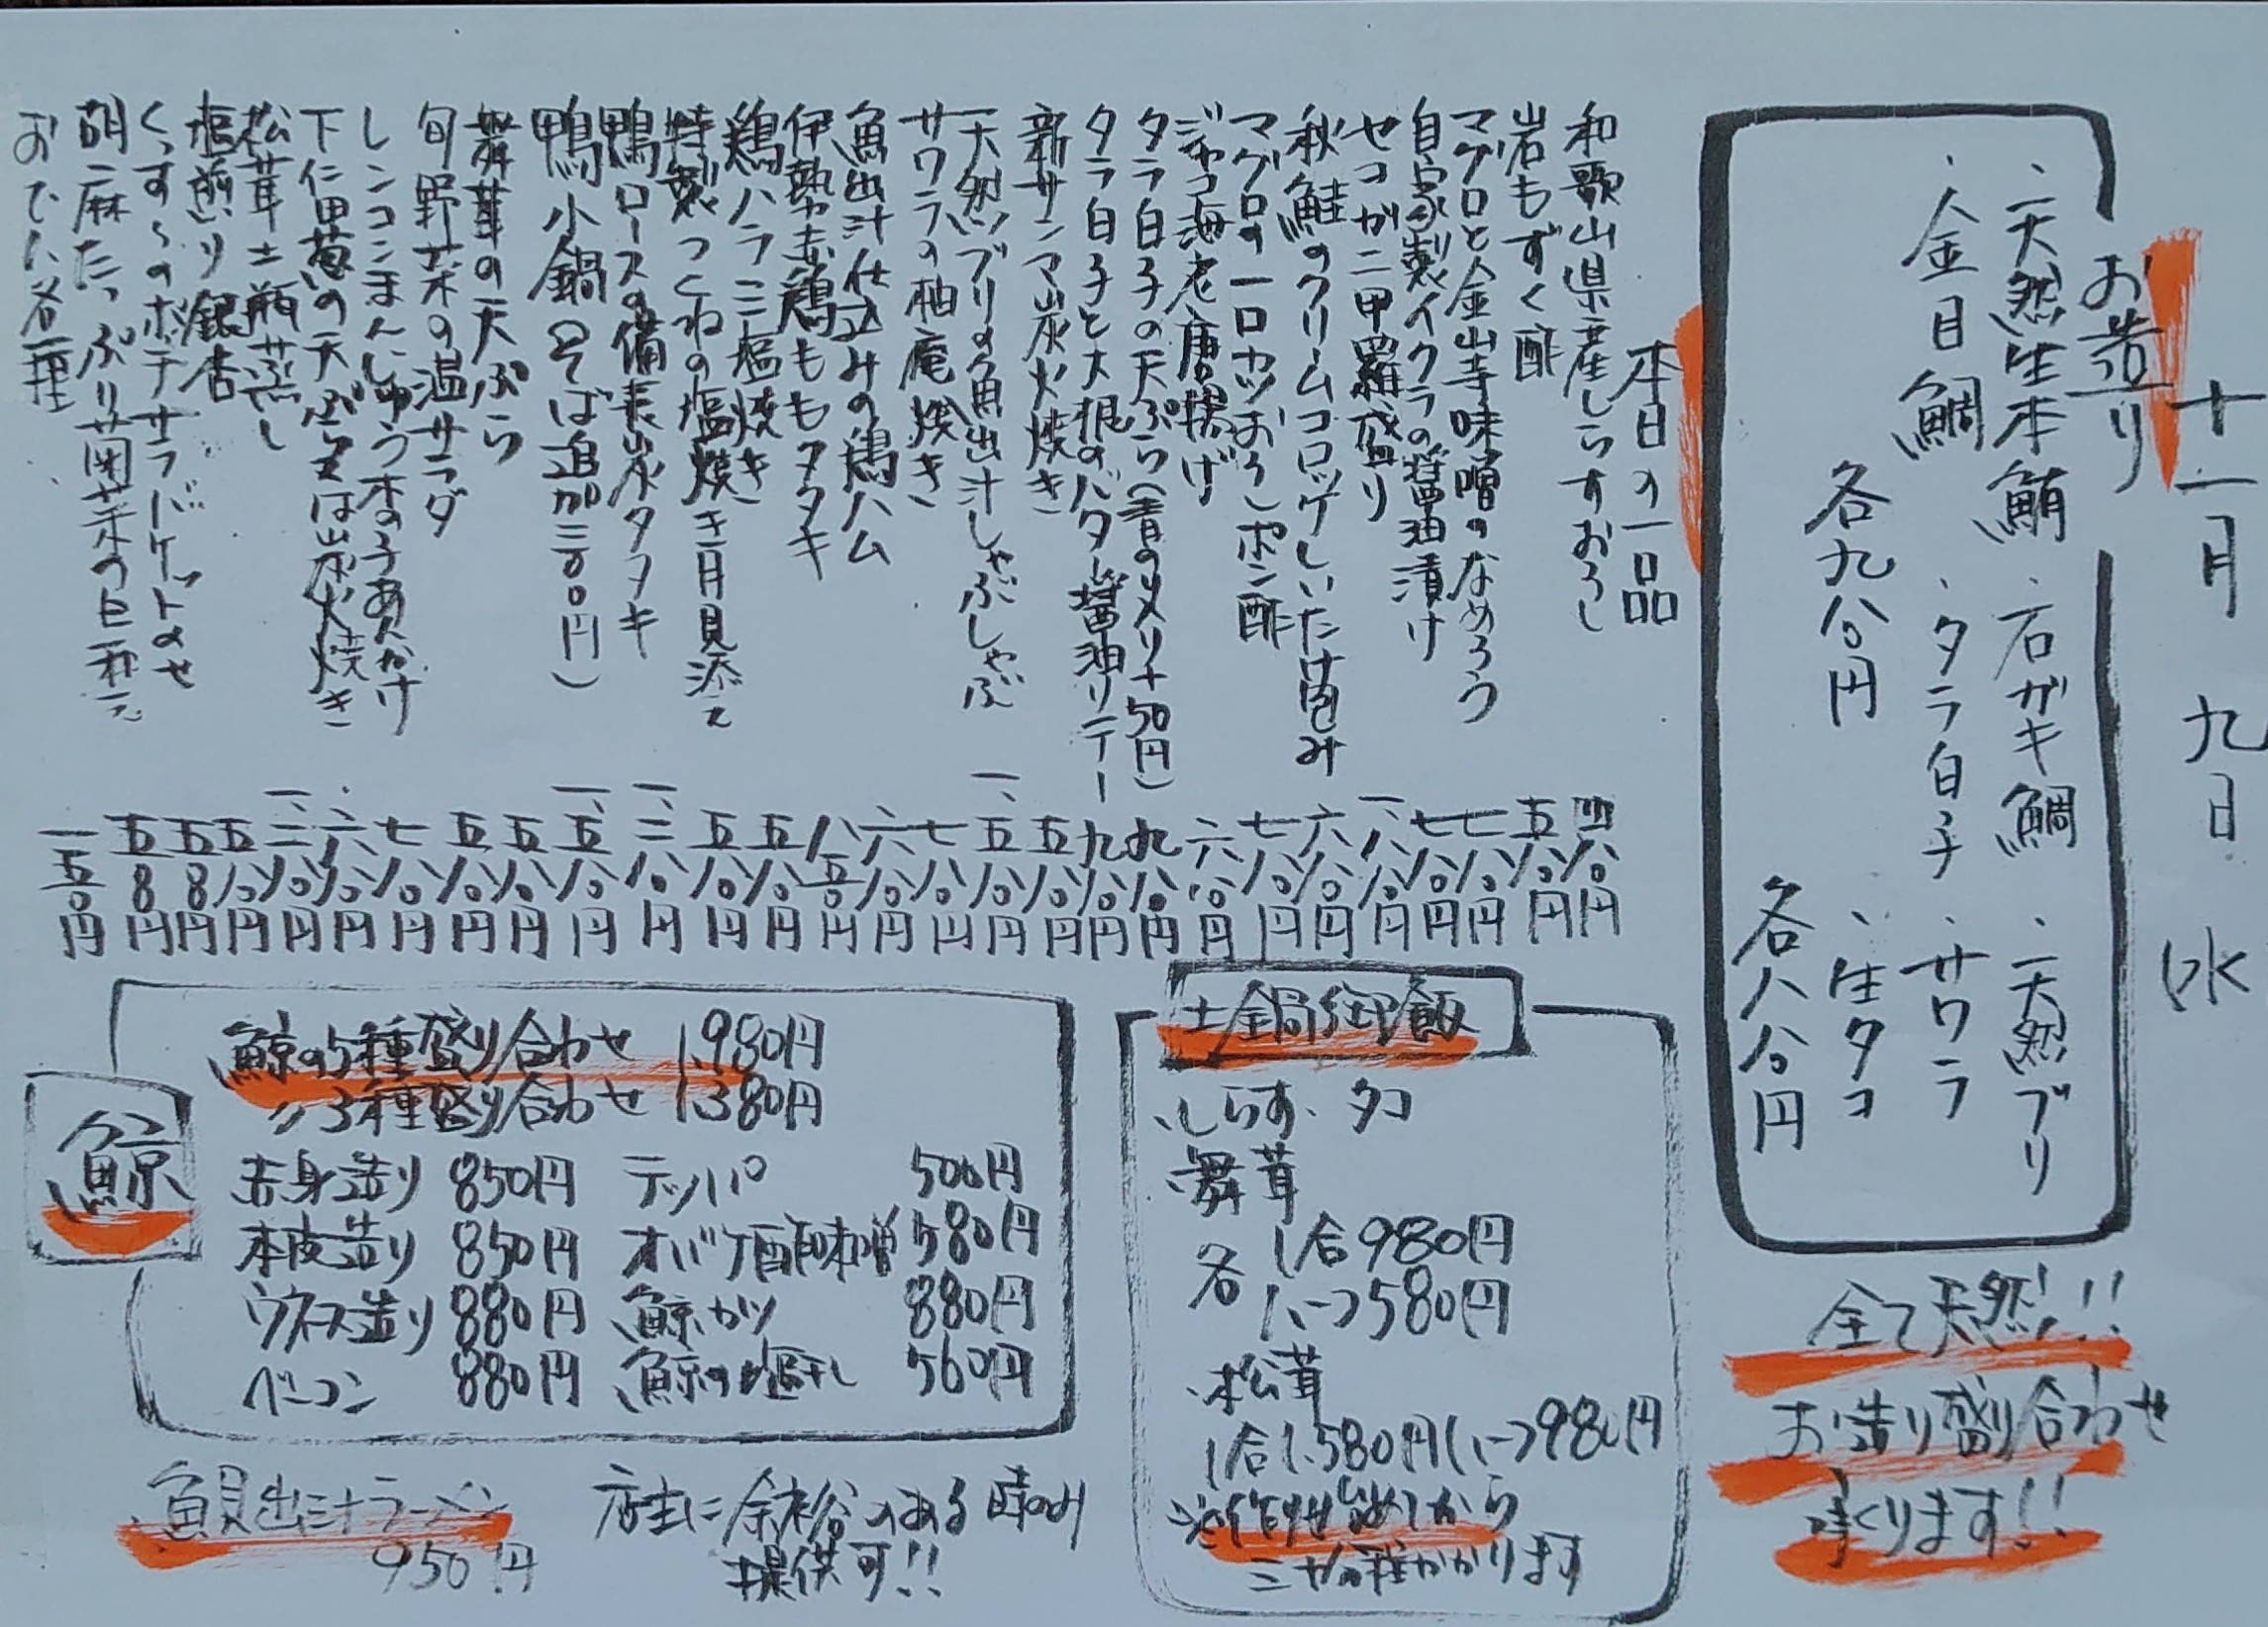 十一月九日(水
お造り
・天然生本鮪 ・石ガキ鯛 ・天然ブリ
・金目鯛 ・タラ白子 ・サワラ
・生タコ
各九八〇円
各八八〇円
全て天然!!
お造り盛り合わせ
承ります!!
本日の一品
和歌山県産しらすおろし 四八〇円
岩もずく酢 五八〇円
マグロと金山寺味噌のなめろう 七八〇円
自家製イクラの醤油漬け 七八〇円
セコガニ甲羅盛り 一、八八〇円
秋鮭のクリームコロッケしいたけ包み 六八〇円
マグロの一口カツおろしポン酢 七八〇円
ジャコ海老唐揚げ 六八〇円
タラ白子の天ぷら(青のりメリ+50円) 九八〇円
タラ白子と大根のバター醤油ソテー 九八〇円
新サンマ炭火焼き 五八〇円
天然ブリの魚出汁しゃぶしゃぶ 一、五八〇円
サワラの柚庵焼き 七八〇円
魚出汁仕込みの鶏ハム 六八〇円
伊勢赤鶏ももタタキ 八五〇円
鶏ハラミ塩焼き 五八〇円
特製つくねの塩焼き月見添え 五八〇円
鴨ロースの備長炭タタキ 一、二八〇円
鴨小鍋(〆そば追加三〇〇円) 一、五八〇円
舞茸の天ぷら 五八〇円
旬野菜の温サラダ 五八〇円
レンコンまんじゅうきの子あんかけ 七八〇円
下仁田葱の天ぷら又は炭火焼き 六八〇円
松茸土瓶蒸し 一、二八〇円
塩煎り銀杏 五八〇円
くんすものポテサラバケットのせ 五八〇円
胡麻たっぷり菊菜の白和え 五八〇円
おでん各種 一五〇円
土鍋御飯
・しらす・タコ
・舞茸
各 1合980円
ハーフ580円
・松茸
1合1.580円ハーフ980円
※作り始めてから
三十分程かかります
鯨
鯨の5種盛り合わせ 1.980円
〃3種盛り合わせ 1.380円
赤身造り 850円 テッパ 500円
本皮造り 850円 オバケ酢味噌 580円
ウネス造り 880円 鯨カツ 880円
ベーコン 880円 鯨の塩干し 560円
魚貝出汁ラーメン
950円
店主に余裕のある時のみ
提供可!!